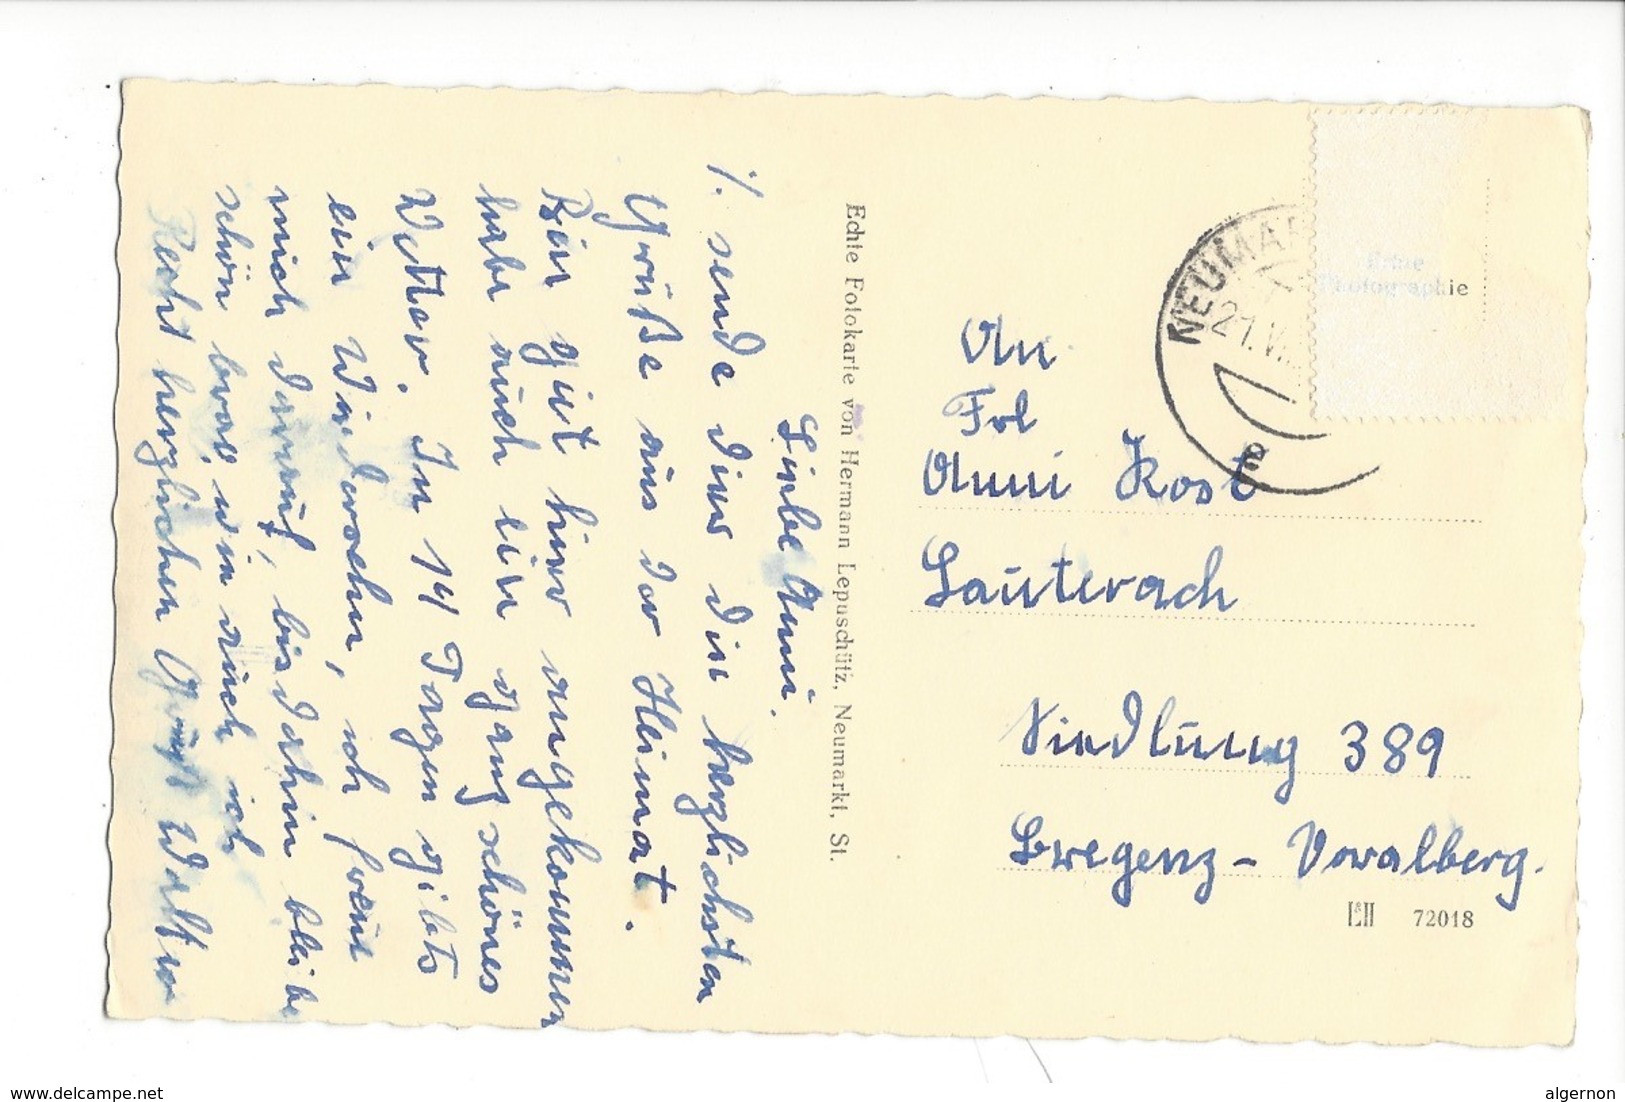 Liebe Anni.
% sende dir die herzlichsten
Grüße aus der Heimat.
Bin gut hier angekommen
habe auch hir ganz schönes
Wetter. In 14 Tagen gibts
ein Wiedersehn, ich freue
mich darauf, bis dahin bleibe
schön brav, wie auch ich
Recht herzlichen Gruß Walter
Echte Fotokarte von Hermann Lepuschütz, Neumarkt, St.
NEUMAR
21.VI
a
Echte
Photographie
An
Frl
Anni Kost
Lauterach
Siedlung 389
Bregenz - Voralberg.
L&H 72018
www.delcampe.net
algernon